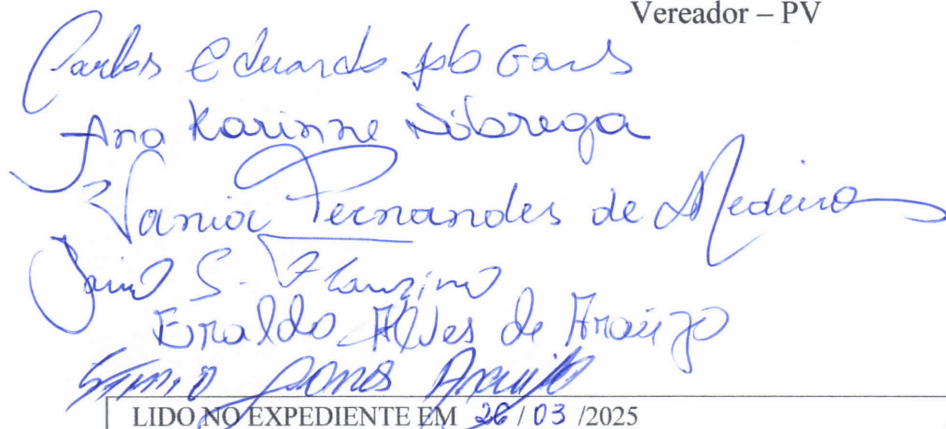 Vereador – PV
Carlos Eduardo
Ana Karinne Nóbrega
Vania Fernandes de Medeiros
S.
Eraldo Alves de Araújo
Gomes Araujo
LIDO NO EXPEDIENTE EM 26 / 03 /2025